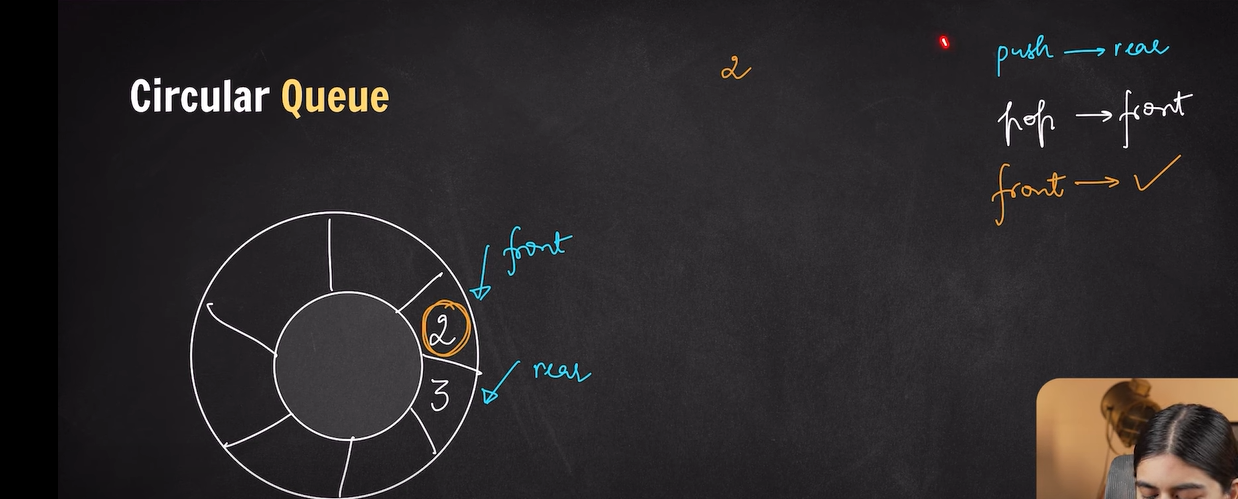 Circular Queue
2
push → rear
pop → front
front → ✓
front
2
rear
3